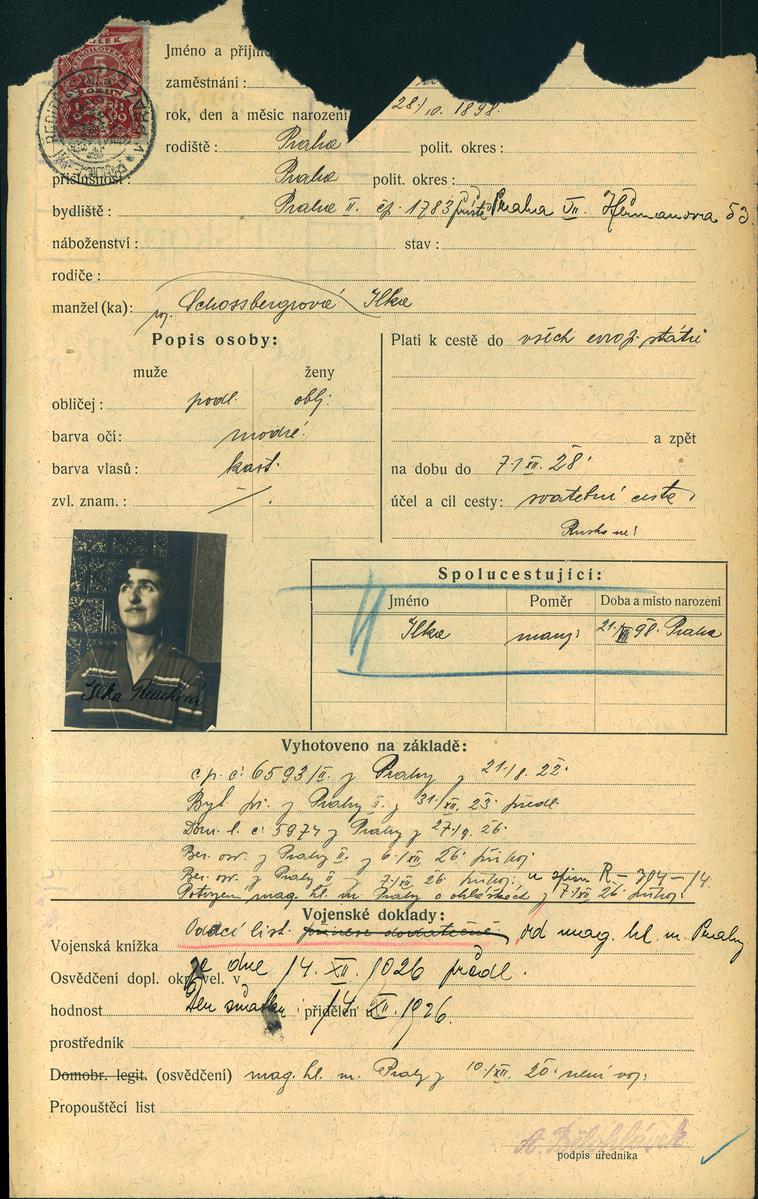 Jméno a příjm
zaměstnání :
rok, den a měsíc narození 28./10. 1898.
rodiště : Praha polit. okres :
příslušnost : Praha polit. okres :
bydliště : Praha II. čp. 1783 příště Praha VII. Heřmanova 53
náboženství : stav :
rodiče :
manžel (ka): roz. Schossbergrová Ilka
Popis osoby:
muže ženy
obličej : podl. oblj.
barva očí : modré.
barva vlasů : kašt.
zvl. znam. : /.
Platí k cestě do všech evrop. států
a zpět
na dobu do 7./XII. 28.
účel a cíl cesty: svatební cesta,
Rusko ne!
Ilka
Spolucestující:
Jméno Poměr Doba a místo narození
Ilka manž. 98. Praha
Vyhotoveno na základě:
c.p. č. 6593/II z Prahy z 21./8. 22.
Byt. př. z Prahy II. z 31./XII. 23 předl.
Dom. l. č. 5974 z Prahy z 27./9. 26.
z Prahy II. z 6./XII. 26 přihoj.
z Prahy II z 7./XII. 26 přihoj. u spisu R-304-14.
Potvrzení mag. hl. m. Prahy o ohláškách z 7./XII. 26. přihoj.
Vojenské doklady:
Oddací list. přinese dodatečně, od mag. hl. m. Prahy
Vojenská knížka
Osvědčení dopl. okr. vel. v ze dne 14. XII. 1926 předl.
hodnost Den sňatku přidělen u 14. XII. 1926.
prostředník
Domobr. legit. (osvědčení) mag. hl. m. Prahy z 10./XII. 20. není voj.
Propouštěcí list
podpis úředníka